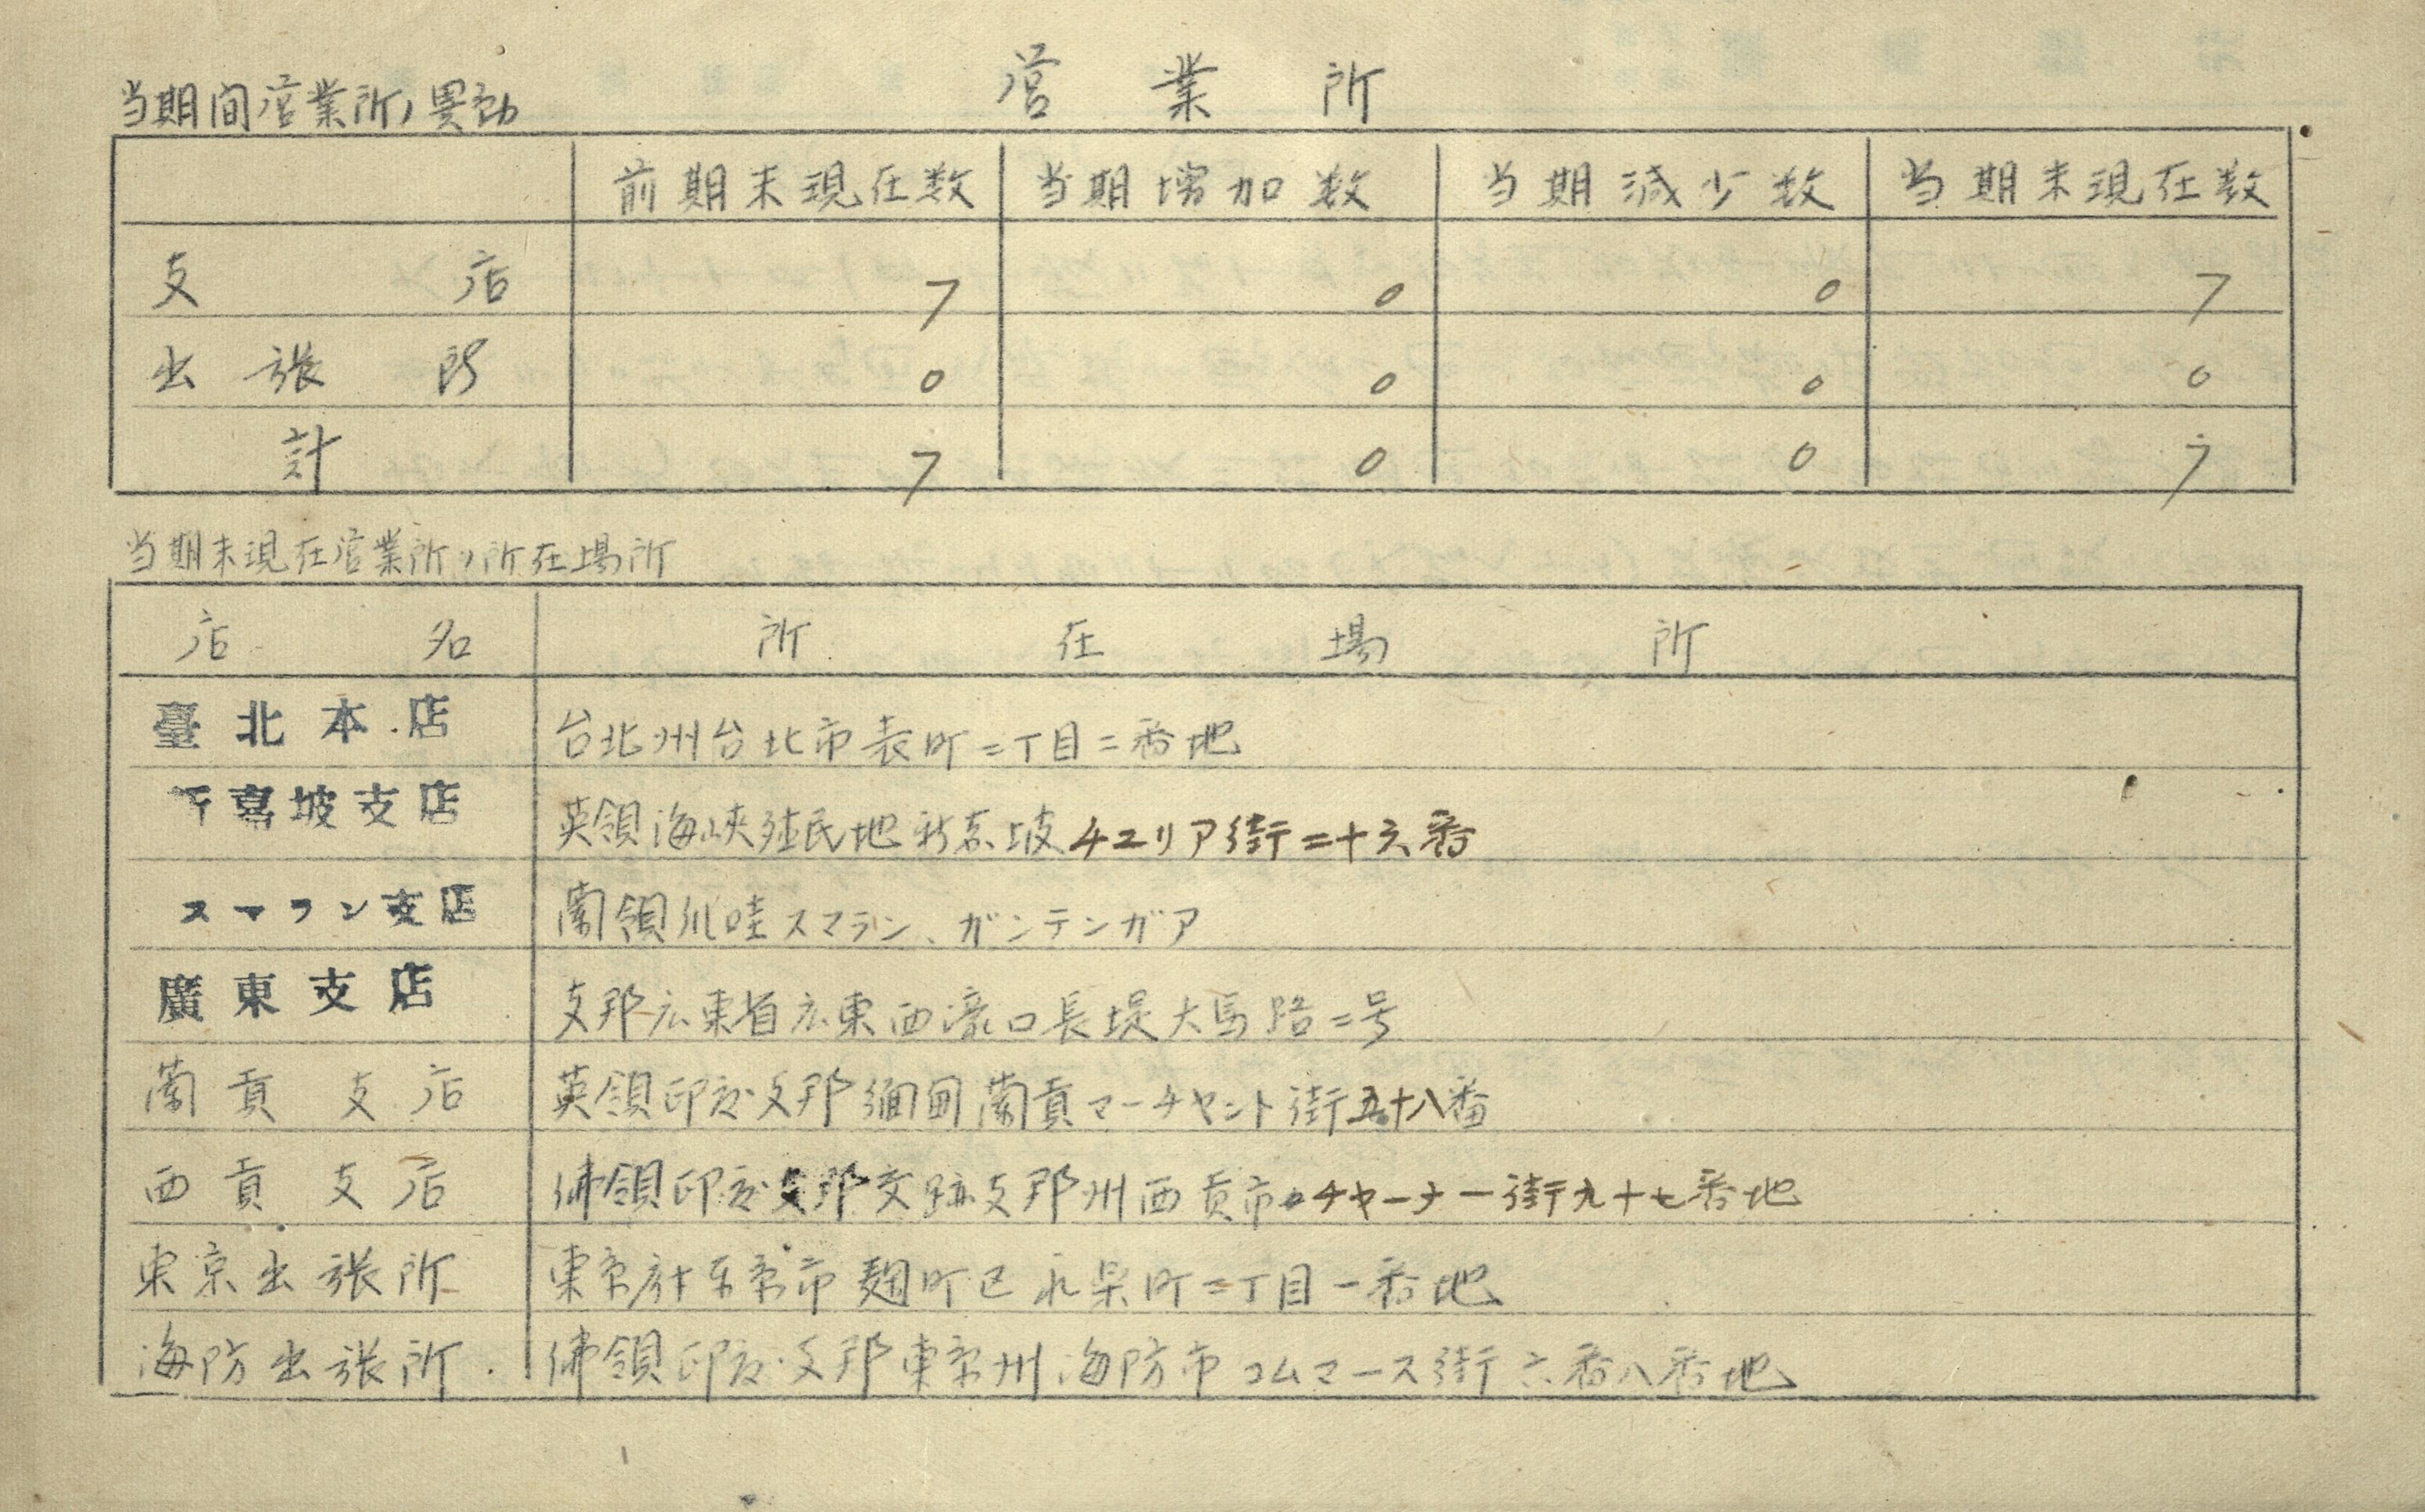 営業所
当期間営業所ノ異動
前期末現在数 当期増加数 当期減少数 当期末現在数
支店 7 0 0 7
出張所 0 0 0 0
計 7 0 0 7
当期末現在営業所ノ所在場所
店名 所在場所
臺北本店 台北州台北市表町二丁目二番地
嘉坡支店 英領海峡殖民地新嘉坡チユリア街二十六番
スマラン支店 蘭領爪哇スマラン、ガンテンガア
廣東支店 支那広東省広東西濠口長堤大馬路二号
蘭貢支店 英領印度支那緬甸蘭貢マーチヤント街五十八番
西貢支店 佛領印度支那交趾支那州西貢市チヤーナー街九十七番地
東京出張所 東京府東京市麹町区永楽町二丁目一番地
海防出張所 佛領印度支那東京州海防市コムマース街六番八番地